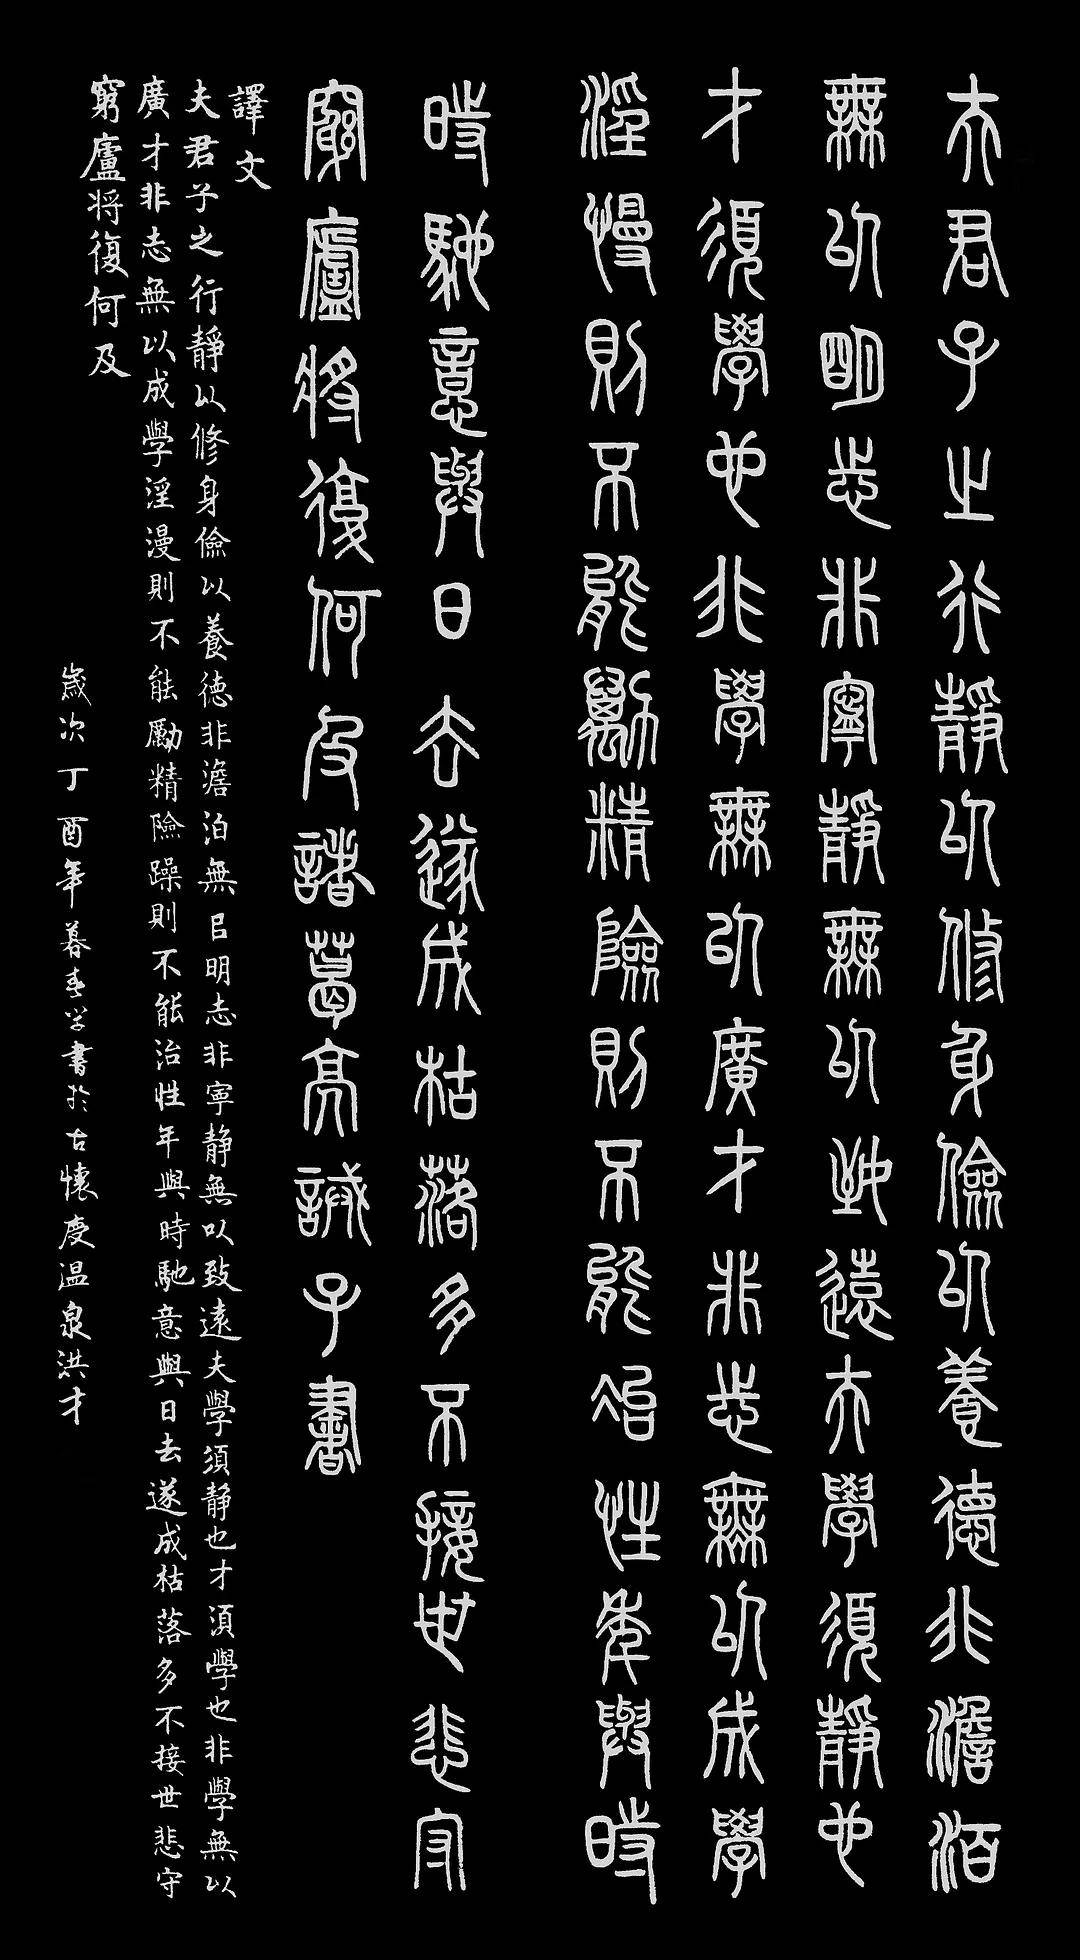 夫君子之行靜以修身儉以養德非澹泊
無以明志非寧靜無以致遠夫學須靜也
才須學也非學無以廣才非志無以成學
淫慢則不能勵精險則不能冶性年與時
時馳意與日去遂成枯落多不接世悲守
窮廬將復何及諸葛亮誡子書
譯文
夫君子之行靜以修身儉以養德非澹泊無㠯明志非寧静無以致遠夫學須静也才須學也非學無以
廣才非志無以成學淫漫則不能勵精險躁則不能治性年與時馳意與日去遂成枯落多不接世悲守
窮廬将復何及
歲次丁酉年暮春学書於古懷慶温泉洪才